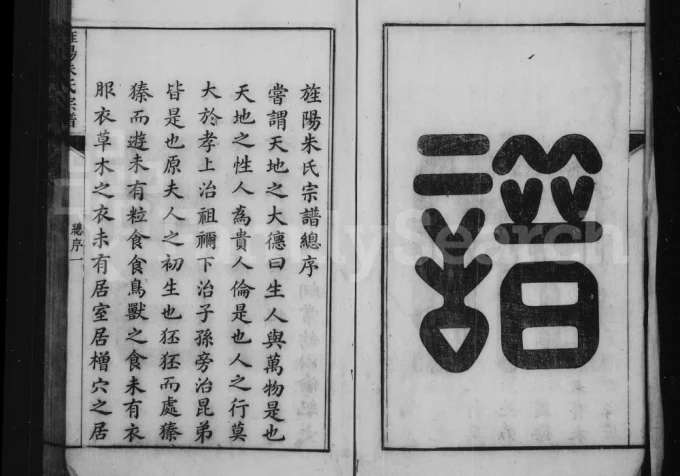 譜
旌陽朱氏宗譜總序
嘗謂天地之大德曰生人與萬物是也
天地之性人為貴人倫是也人之行莫
大於孝上治祖禰下治子孫旁治昆弟
皆是也原夫人之初生也狉狉而處獉
獉而遊未有粒食食鳥獸之食未有衣
服衣草木之衣未有居室居橧穴之居
旌陽朱氏宗譜
總序一
FamilySearch